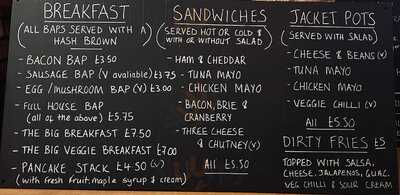 BREAKFAST
(ALL BAPS SERVED WITH A
HASH BROWN)
- BACON BAP £3.50
- SAUSAGE BAP (V avaliable) £3.75
- EGG/mushroom BAP (V) £3.00
- FULL HOUSE BAP
(all of the above) £5.75
- THE BIG BREAKFAST £7.50
- THE BIG VEGGIE BREAKFAST £7.00
- PANCAKE STACK £4.50 (V)
(with fresh fruit, maple syrup & cream)
SANDWICHES
(SERVED HOT OR COLD &
WITH OR WITHOUT SALAD)
- HAM & CHEDDAR
- TUNA MAYO
- CHICKEN MAYO
- BACON, BRIE &
CRANBERRY
- THREE CHEESE
& CHUTNEY (V)
All £5.50
JACKET POTS
(SERVED WITH SALAD)
- CHEESE & BEANS (V)
- TUNA MAYO
- CHICKEN MAYO
- VEGGIE CHILLI (V)
All £5.50
DIRTY FRIES £5
TOPPED WITH SALSA,
CHEESE, JALAPENOS, GUAC,
VEG CHILLI & SOUR CREAM